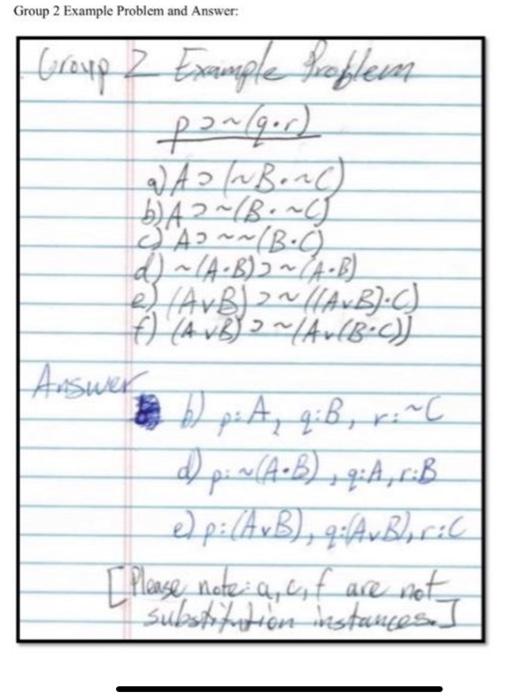 Group 2 Example Problem and Answer:
Group 2 Example Problem
p⊃~(q·r)
a) A⊃(~B·~C)
b) A⊃~(B·~C)
c) A⊃~~(B·C)
d) ~(A·B)⊃~(A·B)
e) (AvB)⊃~((AvB)·C)
f) (AvB)⊃~(Av(B·C))
Answer
b) p:A, q:B, r:~C
d) p:~(A·B), q:A, r:B
e) p:(AvB), q:(AvB), r:C
[Please note: a, c, f are not
substitution instances.]